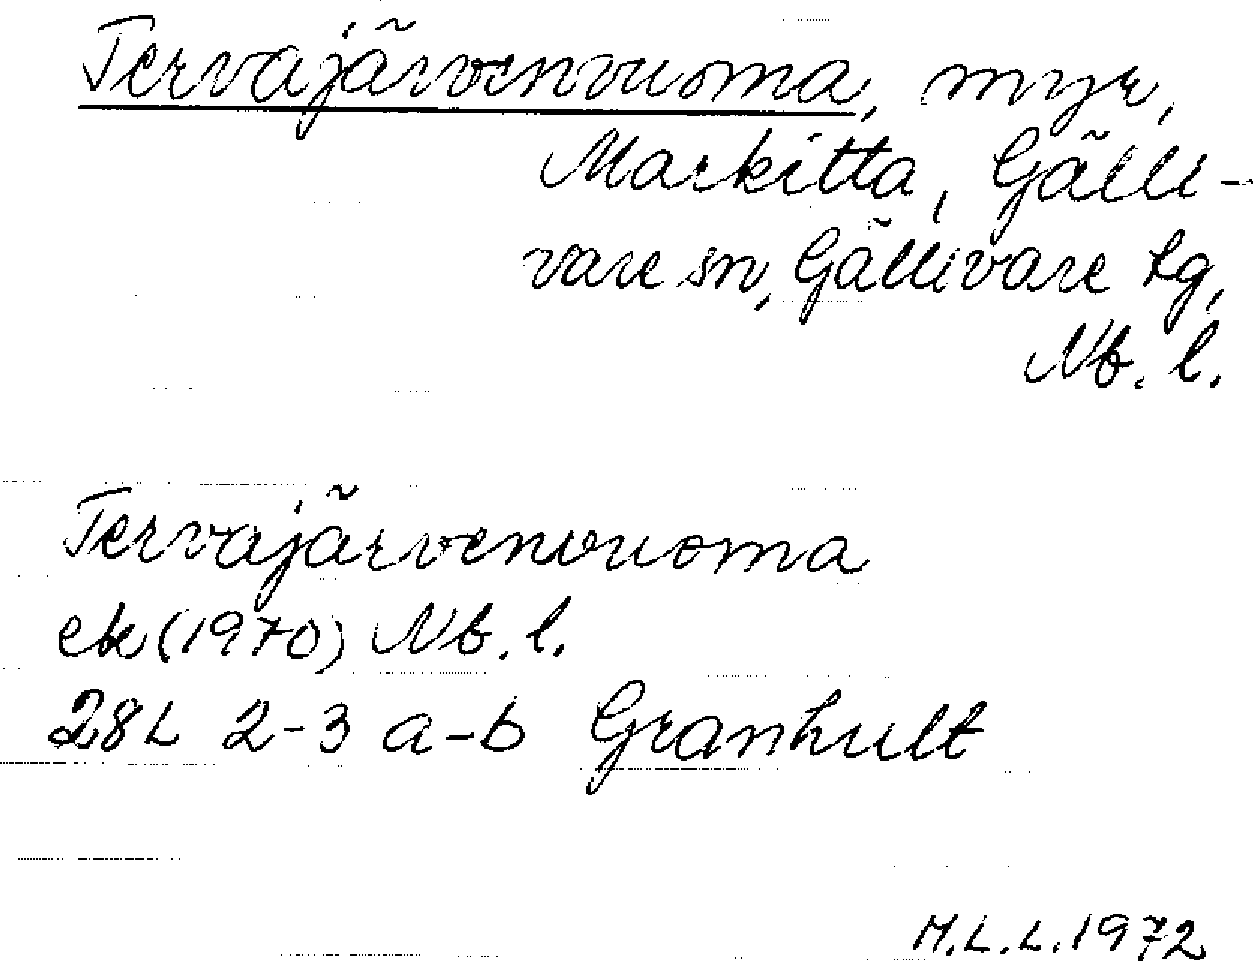 Tervajärvenvuoma, myr,
Markitta, Gälli-
vare sn, Gällivare lg,
Nb. l.
Tervajärvenvuoma
ek (1970) Nb. l.
28L 2-3 a-b Granhult
M.L.L. 1972